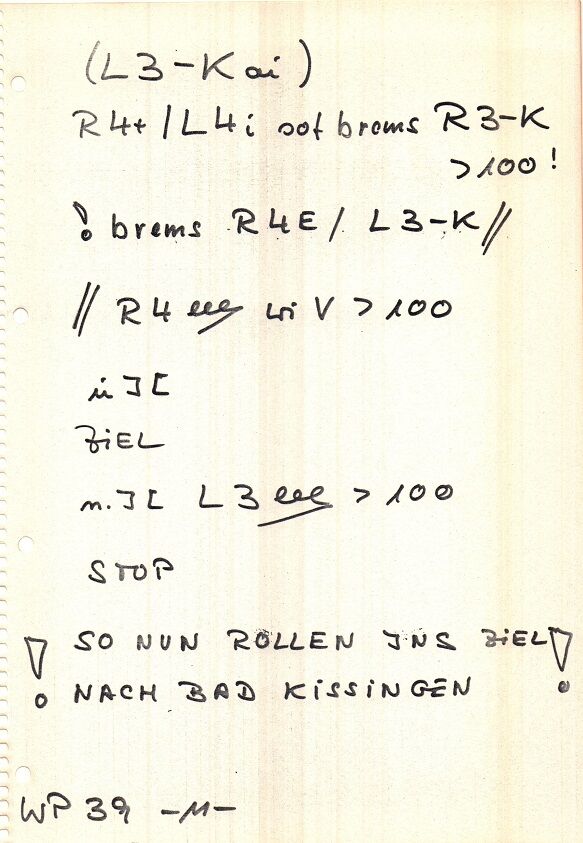 (L3-Kai)
R4+/L4i sof brems R3-K
>100!
! brems R4E/ L3-K//
// R4 eee wi V >100
ü ][
ZIEL
n. ][ L3 eee >100
STOP
! SO NUN ROLLEN INS ZIEL !
NACH BAD KISSINGEN
WP 39 -11-